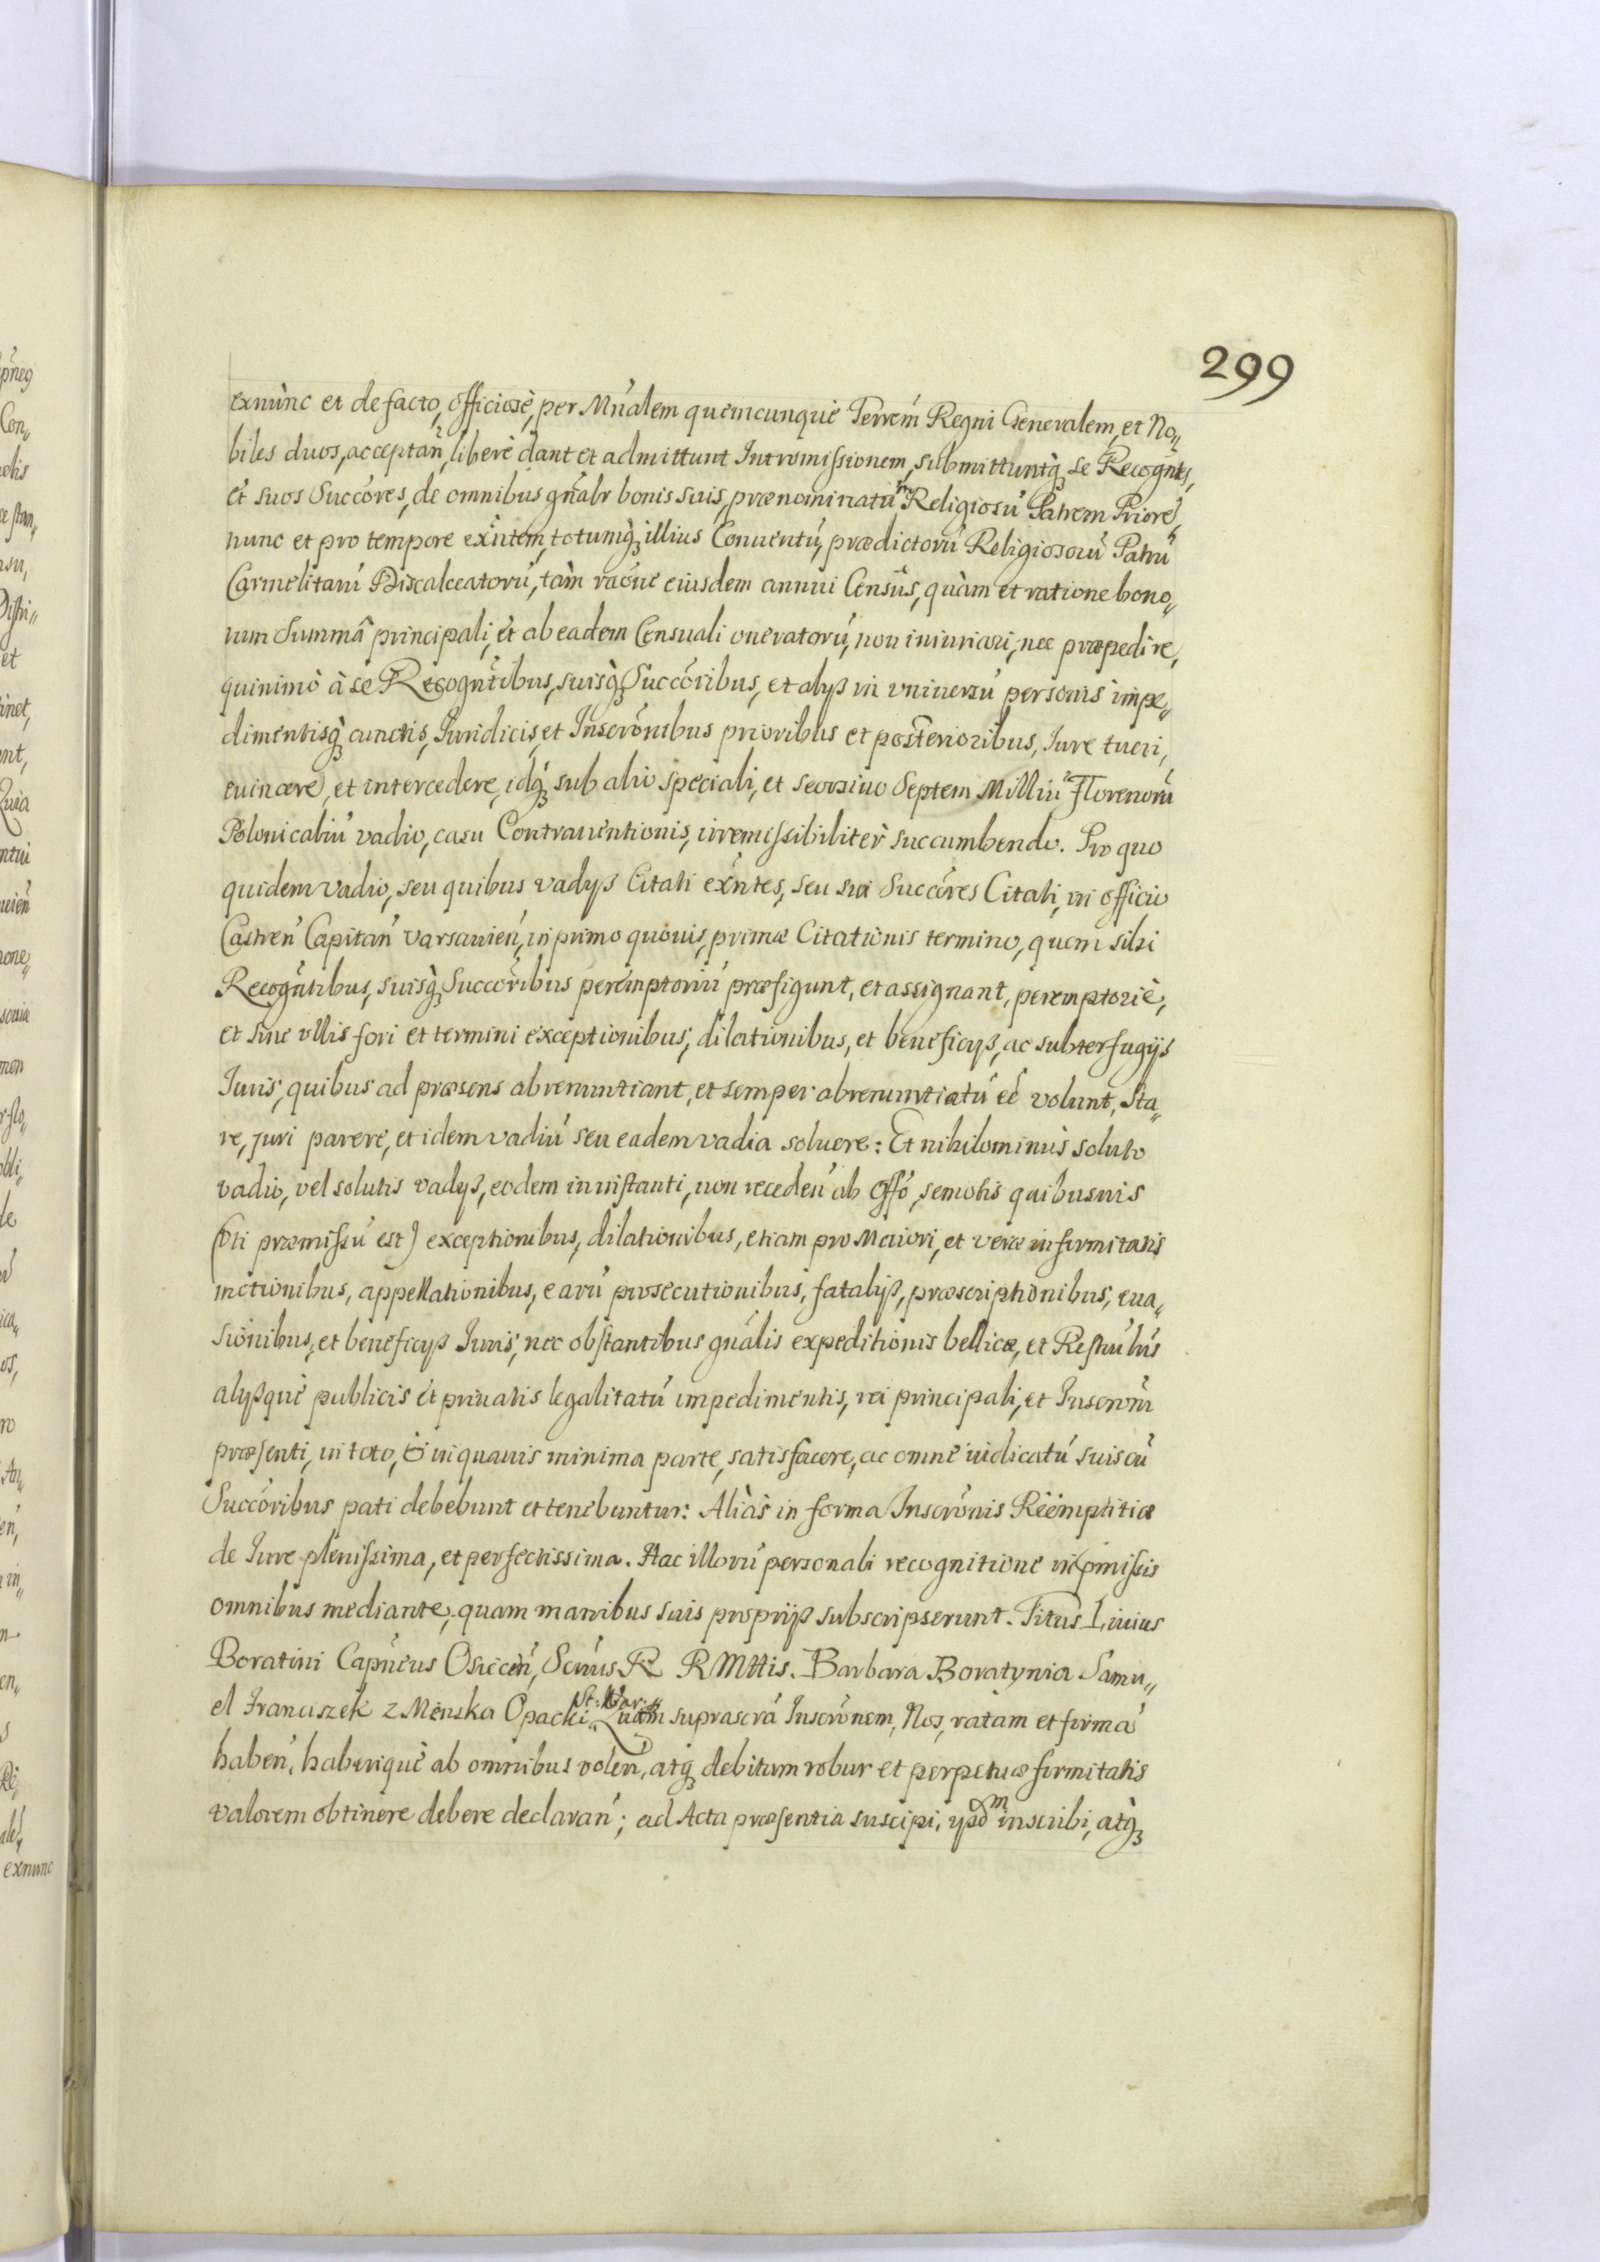 299
exnùnc et defacto, officiosè, per Mńalem quemcunque Terrem̃ Regni Generalem, et No„
biles duos, acceptań, liberè dant et admittunt Intromissionem, submittuntq̀ȝ se Recogńtes,
et suos Succóres, de omnibus gńalr bonis suis, prænominatũ Religiosú Patrem Prioré,
nunc et pro tempore exñtem, totumq̀ȝ illius Conuentú, prædictorú Religiosorũ Patrũ
Carmelitarú Discalceatorú, tàm raõne eiusdem annui Censûs, quàm et ratione bono„
rum Summâ principali, et ab eadem Censuali oneratorú, non iniuriari, nec præpedire,
quinimò à se Recogñtibus, suisq̀ȝ Succóribus, et alyß in vniuersú personis impe„
dimentisq̀ȝ cunctis, Juridicis, et Inscrõnibus prioribus et posterioribus, Iure tueri,
euincere, et intercedere, idq̀ȝ sub alio speciali, et seorsiuo Septem Milliũ Florenorũ
Polonicaliú vadio, casu Contrauentionis, irremissibilitèr succumbendo. Pro quo
quidem vadio, seu quibus vadyß Citati exñtes, seu sui Succóres Citati, in officio
Castreń Capitań Varsauień, in primo quouis, primæ Citationis termino, quem sibi
Recogñtibus, suisq̀ȝ Succõribus peremptoriú præfigunt, et assignant, peremptoriè,
et sine vllis fori et termini exceptionibus, dilationibus, et beneficyß, ac subterfugijs
Iuris, quibus ad præsens abrenuntiant, et semper abrenuntiatú eé volunt, sta„
re, juri parere, et idem vadiú seu eadem vadia soluere: Et nihilominùs soluto
vadio, vel solutis vadyß, eodem in instanti, non recedeń ab offó, semotis quibusuis
(vti præmissú est) exceptionibus, dilationibus, etiam pro Maiori, et veræ infirmitatis
mctionibus, appellationibus, earú prosecutionibus, fatalyß, præscriptionibus, eua„
sionibus, et beneficyß Iuris, nec obstantibus gńalis expeditionis bellicæ, et
alyßquè publicis et priuatis legalitatú impedimentis, rei principali, et
præsenti, in toto, & in quauis minima parte, satisfacere, ac omne iudicatú suis cũ
Succóribus pati debebunt et tenebuntur: Aliàs in forma Inscrõnis Rëëmptitiæ
de Iure plenissima, et perfectissima. Hac illorú personali recognitione in pmissis
omnibus mediante, quam manibus suis proprijß subscripserunt. Titus Liuius
Boratini Capńeus Osiecéń, Scruus R RMttis. Barbara Boratynia Samu„
el Franciszek z Menska Opacki St: War: Quam suprascrã Inscrõnem, Nos, ratam et firmá
habeń, haberiquè ab omnibus voleń, atq̀ȝ debitum robur et perpetuæ firmitatis
valorem obtinere debere declarań; ad Acta præsentia suscipi, inscribi, atq̀ȝ